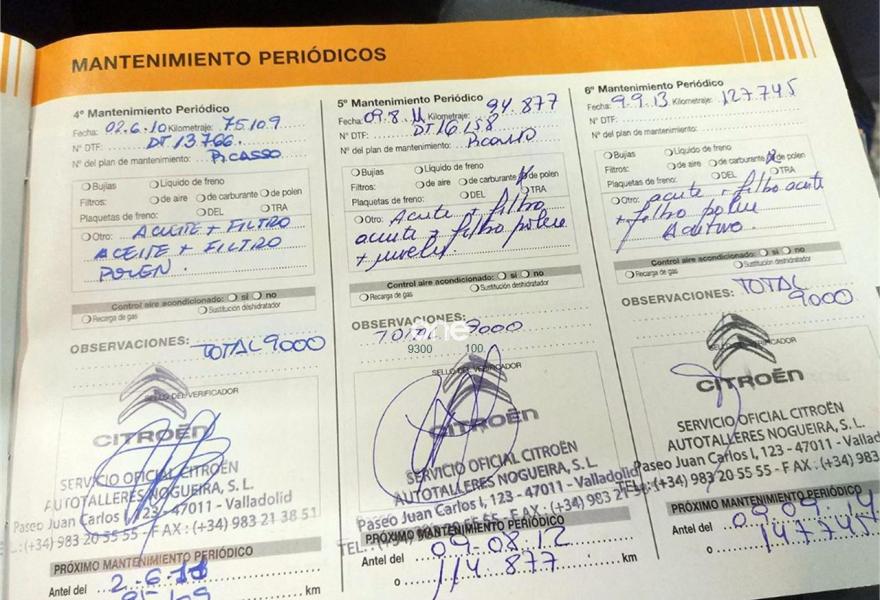 MANTENIMIENTO PERIÓDICOS
4º Mantenimiento Periódico
Fecha: 02.6.10 Kilometraje: 75109
Nº DTF: DT 13766.
Nº del plan de mantenimiento: PICASSO
Bujías Líquido de freno
Filtros: de aire de carburante de polen
Plaquetas de freno: DEL TRA
Otro: ACEITE + FILTRO
ACEITE + FILTRO
POLEN.
Control aire acondicionado: si no
Recarga de gas Sustitución deshidratador
OBSERVACIONES: TOTAL 9000
SELLO DEL VERIFICADOR
CITROËN
SERVICIO OFICIAL CITROËN
AUTOTALLERES NOGUEIRA, S.L.
Paseo Juan Carlos I, 123 - 47011 - Valladolid
(+34) 983 20 55 55 - FAX: (+34) 983 21 38 51
PRÓXIMO MANTENIMIENTO PERIÓDICO
Antel del 2-6-11
km
5º Mantenimiento Periódico
Fecha: 09.8.11 Kilometraje: 94.877
Nº DTF: DT 16.158
Nº del plan de mantenimiento: Picasso
Bujías Líquido de freno
Filtros: de aire de carburante de polen
Plaquetas de freno: DEL TRA
Otro: Aceite + filtro
aceite + filtro polen
+ niveles
Control aire acondicionado: si no
Recarga de gas Sustitución deshidratador
OBSERVACIONES:
TOTAL 9000
9300 100
SELLO DEL VERIFICADOR
CITROËN
SERVICIO OFICIAL CITROËN
AUTOTALLERES NOGUEIRA, S.L.
Paseo Juan Carlos I, 123 - 47011 - Valladolid
TEL.: (+34) 983 20 55 55 - FAX: (+34) 983 21
PRÓXIMO MANTENIMIENTO PERIÓDICO
Antel del 09-08-12
o 114.877 km
6º Mantenimiento Periódico
Fecha: 9.9.13 Kilometraje: 127.745
Nº DTF:
Nº del plan de mantenimiento:
Bujías Líquido de freno
Filtros: de aire de carburante de polen
Plaquetas de freno: DEL TRA
Otro: aceite + filtro aceite
+ filtro polen
Aditivo.
Control aire acondicionado: si no
Recarga de gas Sustitución deshidratador
OBSERVACIONES: TOTAL
9000
SELLO DEL VERIFICADOR
CITROËN
SERVICIO OFICIAL CITROËN
AUTOTALLERES NOGUEIRA, S.L.
Paseo Juan Carlos I, 123 - 47011 - Vallad
TEL.: (+34) 983 20 55 55 - FAX: (+34) 983
PRÓXIMO MANTENIMIENTO PERIÓDICO
Antel del 09 09 14
o 147745